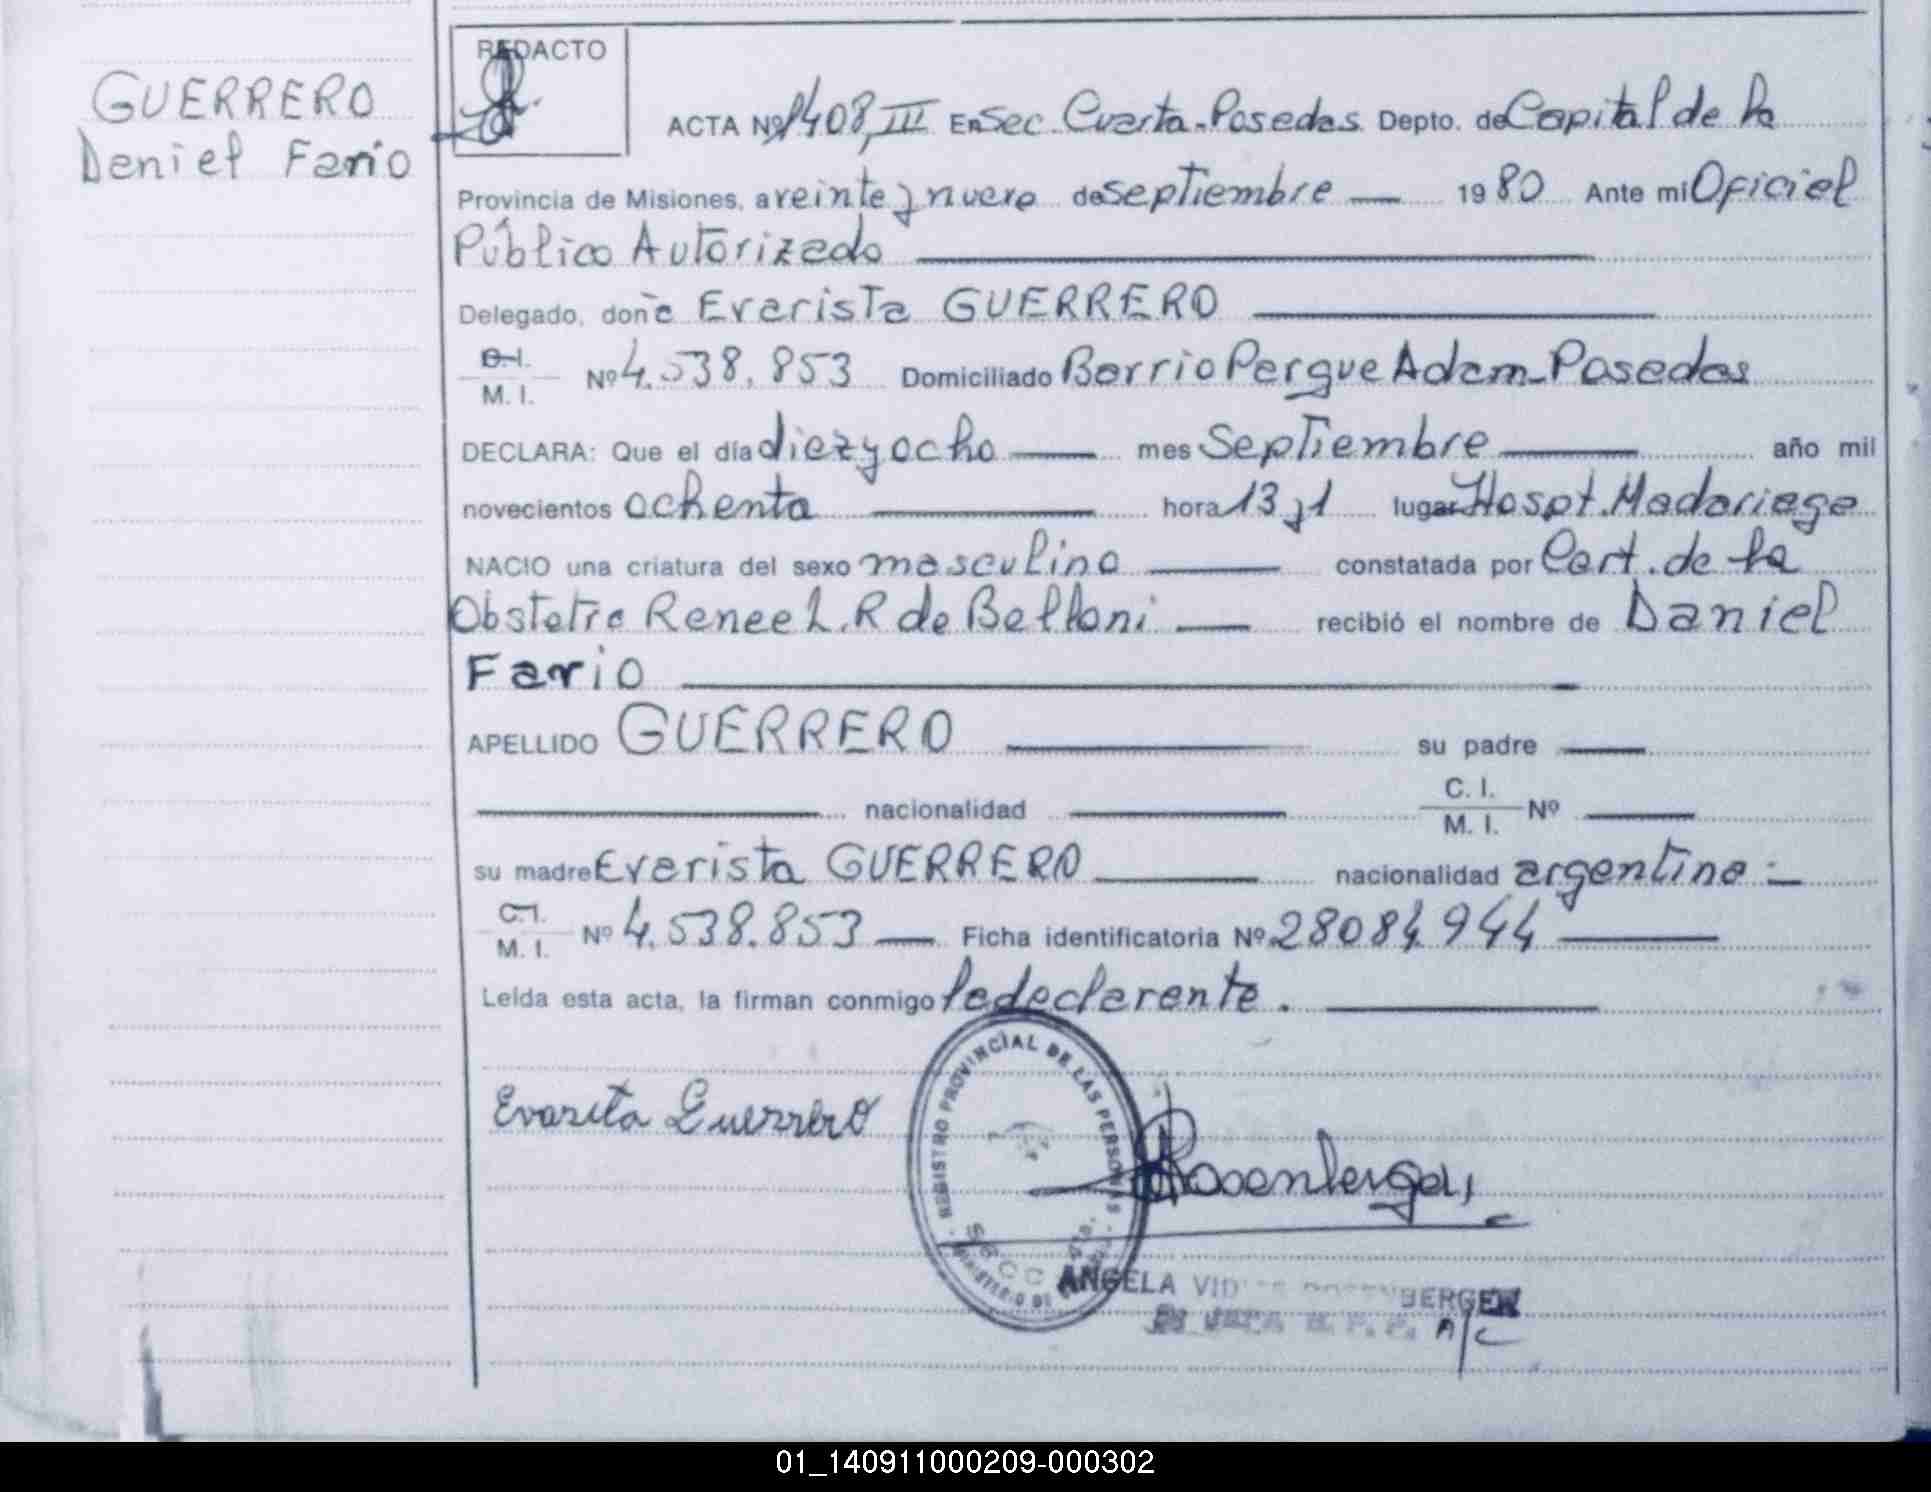 GUERRERO
Daniel Fario
REDACTO
ACTA Nº 1408, III En Sec. Cuarta-Posadas Depto. de Capital de la
Provincia de Misiones, a veinte y nueve de septiembre — 1980 Ante mi Oficial
Público Autorizado
Delegado, doña Evarista GUERRERO
C.I. M. I. Nº 4.538.853 Domiciliado Barrio Parque Adam-Posadas
DECLARA: Que el día diez y ocho — mes Septiembre — año mil
novecientos ochenta — hora 13 y 1 lugar Hospt. Madariaga
NACIO una criatura del sexo masculino — constatada por Cert. de la
Obstetra Renee L. R de Belloni — recibió el nombre de Daniel
Fario
APELLIDO GUERRERO — su padre —
— nacionalidad — C. I. M. I. Nº —
su madre Evarista GUERRERO — nacionalidad argentina : —
C.I. M. I. Nº 4.538.853 — Ficha identificatoria Nº 28084.944 —
Leída esta acta, la firman conmigo la declarante. —
Evarista Guerrero
REGISTRO PROVINCIAL DE LAS PERSONAS
SECC 4ta.
Rosenberger
ANGELA
BERGER
A/C
01_140911000209-000302